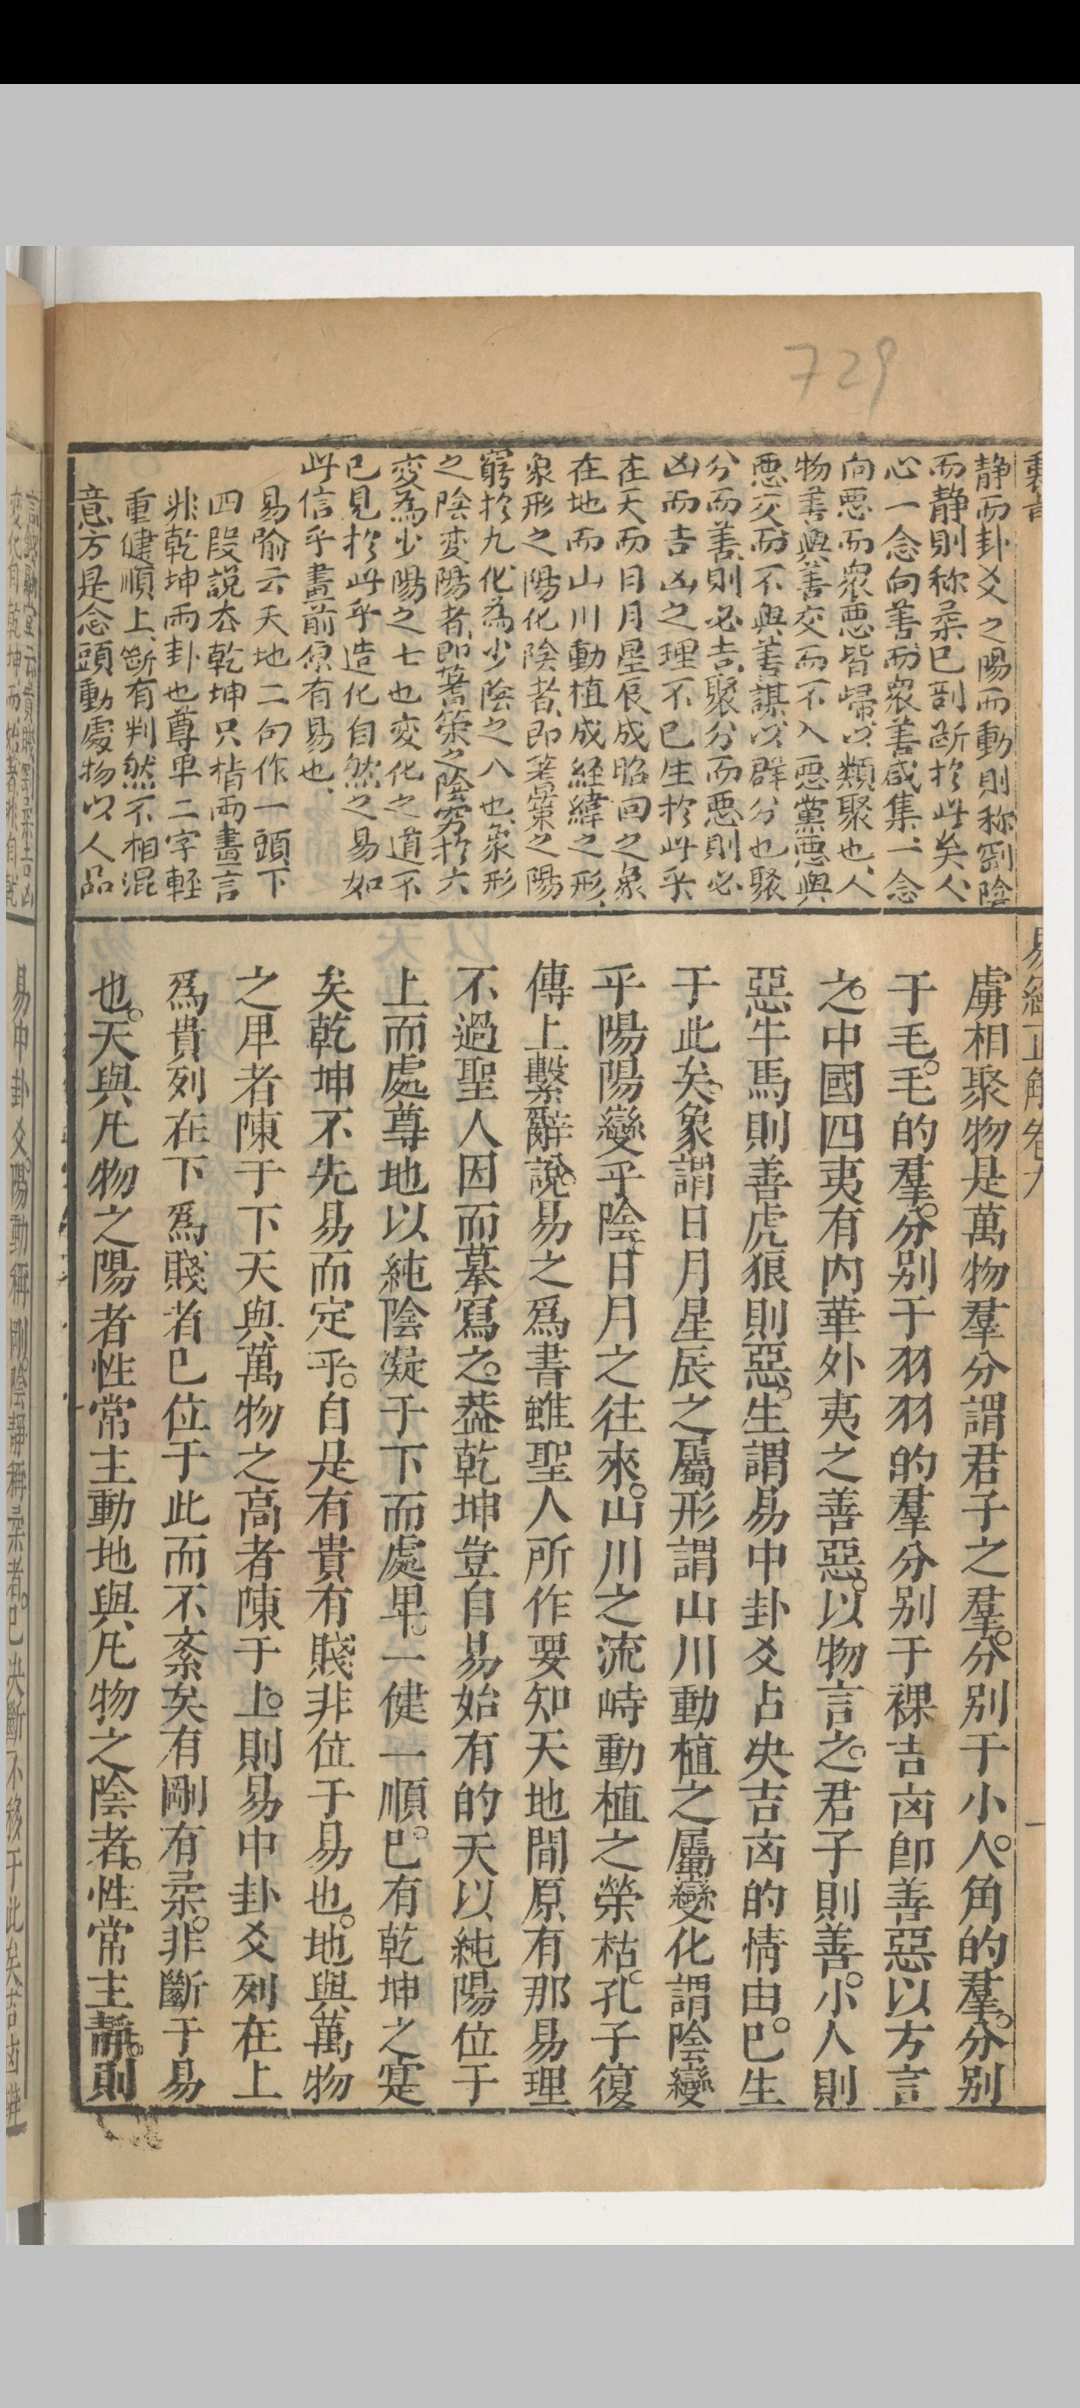 729
靜而卦爻之陽而動則称剛陰
而靜則称柔已剖断扵此矣人
心一念向善而衆善咸集一念
向惡而衆惡皆歸以類聚也人
物善與善交而不入惡黨惡與
惡交而不與善謀以群分也聚
分而善則必吉聚分而惡則必
凶而吉凶之理不已生扵此乎
在天而日月星辰成昭回之象
在地而山川動植成経緯之形
象形之陽化陰者即蓍策之陽
窮扵九化為少陰之八也象形
之陰変陽者即蓍策之陰窮扵六
変為少陽之七也変化之道不
已見扵此乎造化自然之易如
此信乎畫前原有易也
易喻云天地二句作一頭下
四段說去乾坤只指兩畫言
非乾坤兩卦也尊卑二字軽
重健順上断有判然不相混
意方是念頭動處物以人品
易經正解卷九
虜相聚物是萬物羣分謂君子之羣分别于小人角的羣分别
于毛毛的羣分别于羽羽的羣分别于裸吉㐫卽善惡以方言
之中國四夷有内華外夷之善惡以物言之君子則善小人則
惡牛馬則善虎狼則惡生謂易中卦爻占决吉㐫的情由巳生
于此矣象謂日月星辰之屬形謂山川動植之屬變化謂陰變
乎陽陽變乎陰日月之往來山川之流峙動植之榮枯孔子復
傳上繫辭說易之爲書雖聖人所作要知天地間原有那易理
不過聖人因而摹寫之葢乾坤豈自易始有的天以純陽位于
上而處尊地以純陰凝于下而處卑一健一順巳有乾坤之寔
矣乾坤不先易而定乎自是有貴有賤非位于易也地與萬物
之卑者陳于下天與萬物之高者陳于上則易中卦爻列在上
爲貴列在下爲賤者巳位于此而不紊矣有剛有柔非斷于易
也天與凡物之陽者性常主動地與凡物之陰者性常主靜則
易中卦爻陽動稱剛陰靜稱柔者巳决斷不移于此矣吉㐫